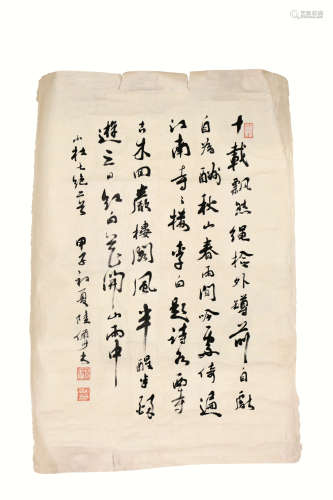 十載飄然繩檢外罇前自獻
自為酬秋山春雨閒吟處倚遍
江南寺々樓李白題詩水西寺
古木回巖樓閣風半醒半醉
遊三日紅白花開山雨中
小杜七絕二首 甲子初夏陸儼少